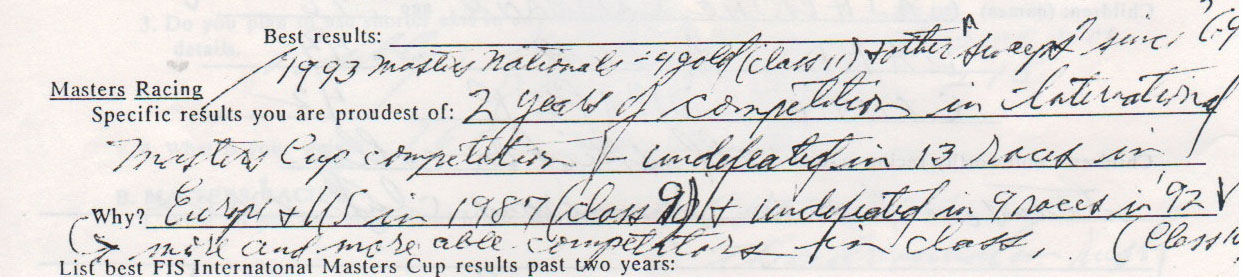 Best results:
1993 Masters Nationals - 4 gold (class 11) + other "sweeps" since
Masters Racing
Specific results you are proudest of: 2 years of competition in International
Masters Cup competition - undefeated in 13 races in
Why? Europe + US in 1987 (class 9) + undefeated in 9 races in '92
more and more able competitors in class. (Class
List best FIS Internatonal Masters Cup results past two years: